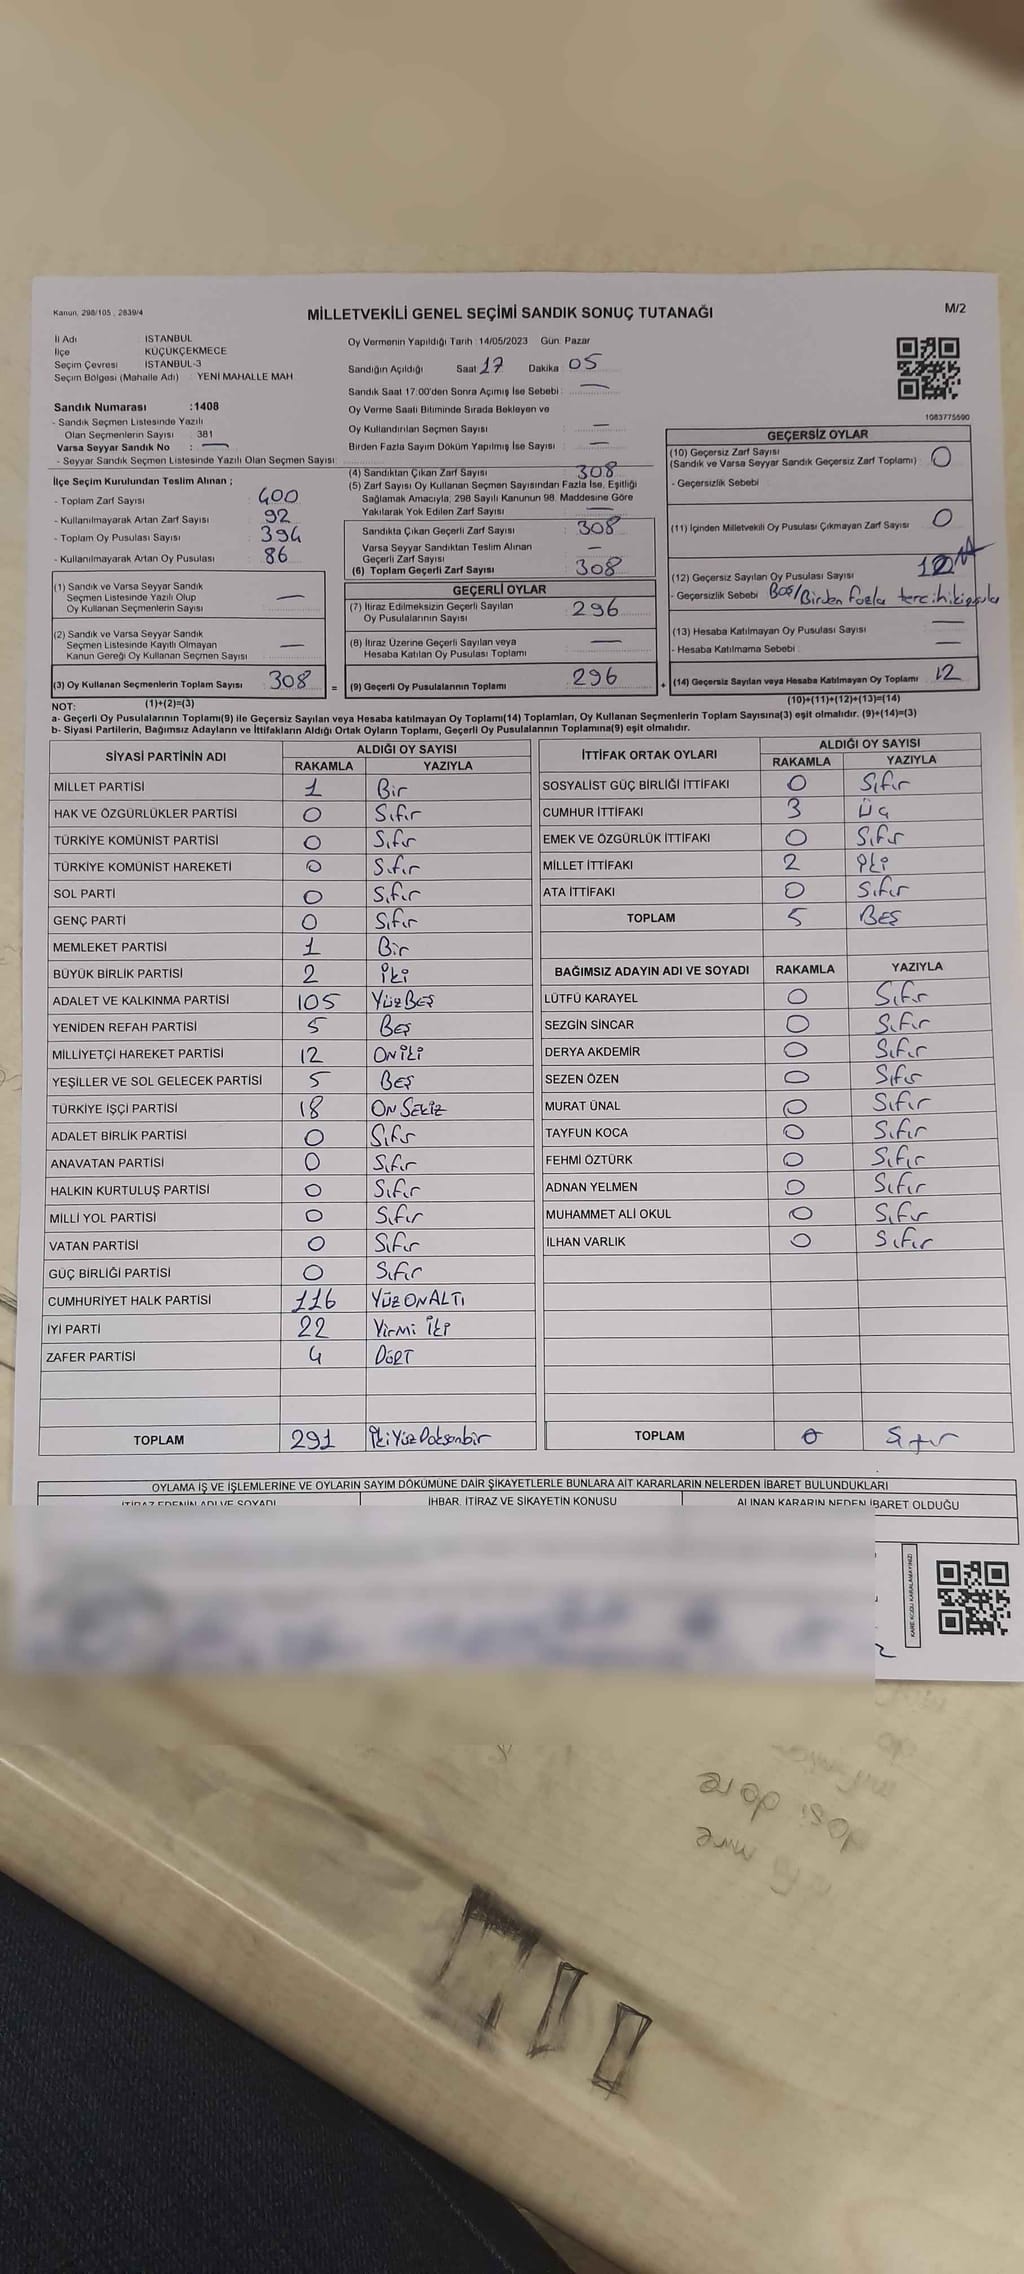 Kanun, 298/105 , 2839/4
MİLLETVEKİLİ GENEL SEÇİMİ SANDIK SONUÇ TUTANAĞI
M/2
İl Adı İSTANBUL
İlçe KÜÇÜKÇEKMECE
Seçim Çevresi İSTANBUL-3
Seçim Bölgesi (Mahalle Adı) : YENİ MAHALLE MAH.
Sandık Numarası :1408
- Sandık Seçmen Listesinde Yazılı
Olan Seçmenlerin Sayısı : 381
Varsa Seyyar Sandık No : —
- Seyyar Sandık Seçmen Listesinde Yazılı Olan Seçmen Sayısı:
İlçe Seçim Kurulundan Teslim Alınan ;
- Toplam Zarf Sayısı : 400
- Kullanılmayarak Artan Zarf Sayısı : 92
- Toplam Oy Pusulası Sayısı : 394
- Kullanılmayarak Artan Oy Pusulası : 86
(1) Sandık ve Varsa Seyyar Sandık
Seçmen Listesinde Yazılı Olup
Oy Kullanan Seçmenlerin Sayısı : —
(2) Sandık ve Varsa Seyyar Sandık
Seçmen Listesinde Kayıtlı Olmayan
Kanun Gereği Oy Kullanan Seçmen Sayısı : —
(3) Oy Kullanan Seçmenlerin Toplam Sayısı : 308
Oy Vermenin Yapıldığı Tarih : 14/05/2023 Gün: Pazar
Sandığın Açıldığı Saat 17 Dakika 05
Sandık Saat 17:00'den Sonra Açımış İse Sebebi : —
Oy Verme Saati Bitiminde Sırada Bekleyen ve
Oy Kullandırılan Seçmen Sayısı : —
Birden Fazla Sayım Döküm Yapılmış İse Sayısı : —
(4) Sandıktan Çıkan Zarf Sayısı : 308
(5) Zarf Sayısı Oy Kullanan Seçmen Sayısından Fazla İse, Eşitliği
Sağlamak Amacıyla, 298 Sayılı Kanunun 98. Maddesine Göre
Yakılarak Yok Edilen Zarf Sayısı : —
Sandıkta Çıkan Geçerli Zarf Sayısı : 308
Varsa Seyyar Sandıktan Teslim Alınan
Geçerli Zarf Sayısı : —
(6) Toplam Geçerli Zarf Sayısı : 308
GEÇERLİ OYLAR
(7) İtiraz Edilmeksizin Geçerli Sayılan
Oy Pusulalarının Sayısı : 296
(8) İtiraz Üzerine Geçerli Sayılan veya
Hesaba Katılan Oy Pusulası Toplamı : —
= (9) Geçerli Oy Pusulalarının Toplamı : 296 +
1083775590
GEÇERSİZ OYLAR
(10) Geçersiz Zarf Sayısı
(Sandık ve Varsa Seyyar Sandık Geçersiz Zarf Toplamı) : 0
- Geçersizlik Sebebi
(11) İçinden Milletvekili Oy Pusulası Çıkmayan Zarf Sayısı : 0
(12) Geçersiz Sayılan Oy Pusulası Sayısı : 12
- Geçersizlik Sebebi : Boş/Birden fazla
(13) Hesaba Katılmayan Oy Pusulası Sayısı : —
- Hesaba Katılmama Sebebi : —
(14) Geçersiz Sayılan veya Hesaba Katılmayan Oy Toplamı : 12
NOT: (1)+(2)=(3) (10)+(11)+(12)+(13)=(14)
a- Geçerli Oy Pusulalarının Toplamı(9) ile Geçersiz Sayılan veya Hesaba katılmayan Oy Toplamı(14) Toplamları, Oy Kullanan Seçmenlerin Toplam Sayısına(3) eşit olmalıdır. (9)+(14)=(3)
b- Siyasi Partilerin, Bağımsız Adayların ve İttifakların Aldığı Ortak Oyların Toplamı, Geçerli Oy Pusulalarının Toplamına(9) eşit olmalıdır.
SİYASİ PARTİNİN ADI ALDIĞI OY SAYISI
RAKAMLA YAZIYLA
MİLLET PARTİSİ 1 Bir
HAK VE ÖZGÜRLÜKLER PARTİSİ 0 Sıfır
TÜRKİYE KOMÜNİST PARTİSİ 0 Sıfır
TÜRKİYE KOMÜNİST HAREKETİ 0 Sıfır
SOL PARTİ 0 Sıfır
GENÇ PARTİ 0 Sıfır
MEMLEKET PARTİSİ 1 Bir
BÜYÜK BİRLİK PARTİSİ 2 İki
ADALET VE KALKINMA PARTİSİ 105 YüzBEŞ
YENİDEN REFAH PARTİSİ 5 BEŞ
MİLLİYETÇİ HAREKET PARTİSİ 12 ONİKİ
YEŞİLLER VE SOL GELECEK PARTİSİ 5 BEŞ
TÜRKİYE İŞÇİ PARTİSİ 18 ON SEKİZ
ADALET BİRLİK PARTİSİ 0 Sıfır
ANAVATAN PARTİSİ 0 Sıfır
HALKIN KURTULUŞ PARTİSİ 0 Sıfır
MİLLİ YOL PARTİSİ 0 Sıfır
VATAN PARTİSİ 0 Sıfır
GÜÇ BİRLİĞİ PARTİSİ 0 Sıfır
CUMHURİYET HALK PARTİSİ 116 YÜZ ONALTI
İYİ PARTİ 22 Yirmi İki
ZAFER PARTİSİ 4 DÖRT
TOPLAM 291 İkiYüzDoksanbir
İTTİFAK ORTAK OYLARI ALDIĞI OY SAYISI
RAKAMLA YAZIYLA
SOSYALİST GÜÇ BİRLİĞİ İTTİFAKI 0 Sıfır
CUMHUR İTTİFAKI 3 Üç
EMEK VE ÖZGÜRLÜK İTTİFAKI 0 Sıfır
MİLLET İTTİFAKI 2 İki
ATA İTTİFAKI 0 Sıfır
TOPLAM 5 BEŞ
BAĞIMSIZ ADAYIN ADI VE SOYADI RAKAMLA YAZIYLA
LÜTFÜ KARAYEL 0 Sıfır
SEZGİN SİNCAR 0 Sıfır
DERYA AKDEMİR 0 Sıfır
SEZEN ÖZEN 0 Sıfır
MURAT ÜNAL 0 Sıfır
TAYFUN KOCA 0 Sıfır
FEHMİ ÖZTÜRK 0 Sıfır
ADNAN YELMEN 0 Sıfır
MUHAMMET ALİ OKUL 0 Sıfır
İLHAN VARLIK 0 Sıfır
TOPLAM 0 Sıfır
OYLAMA İŞ VE İŞLEMLERİNE VE OYLARIN SAYIM DÖKÜMÜNE DAİR ŞİKAYETLERLE BUNLARA AİT KARARLARIN NELERDEN İBARET BULUNDUKLARI
İTİRAZ EDENİN ADI VE SOYADI İHBAR, İTİRAZ VE ŞİKAYETİN KONUSU ALINAN KARARIN NEDEN İBARET OLDUĞU
KARE KODU KARALAMAYINIZ!